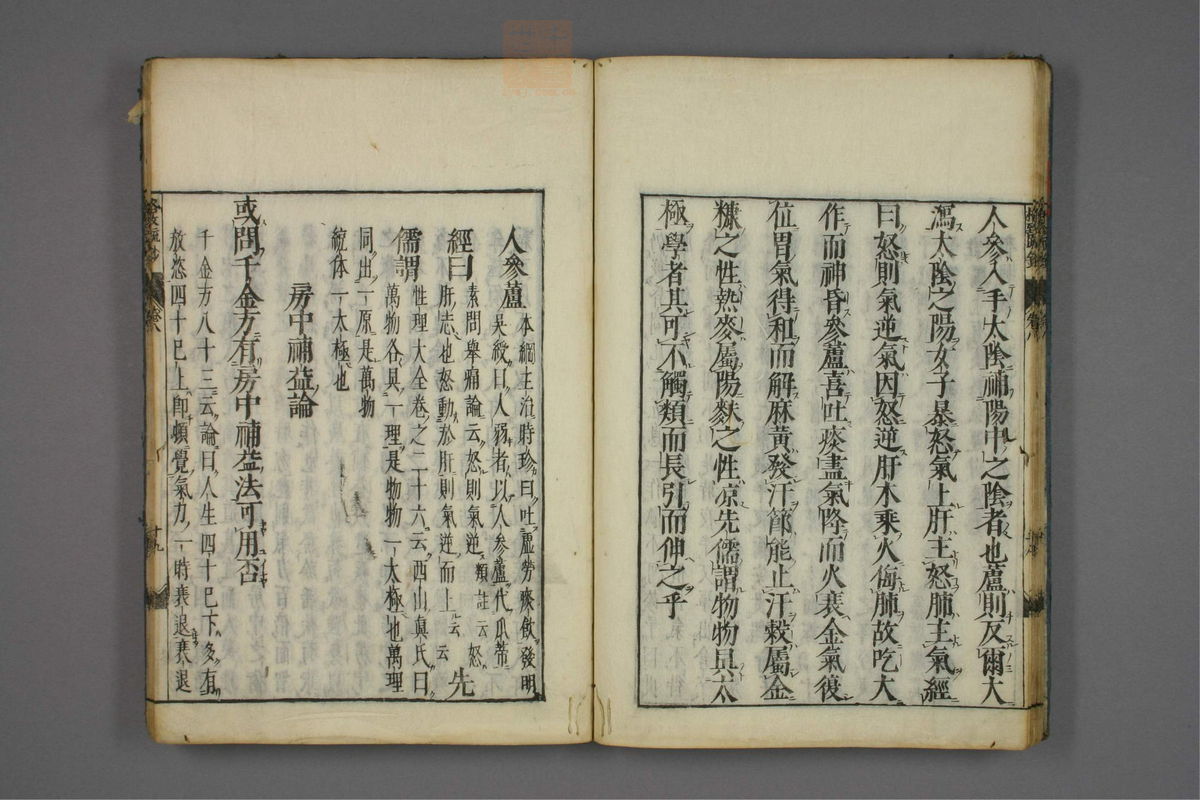 人參入手太陰補陽中之陰者也蘆則反爾大
瀉太陰之陽女子暴怒氣上肝主怒肺主氣經
曰怒則氣逆氣因怒逆肝木乘火侮肺故吃大
作而神昏參蘆喜吐痰盡氣降而火衰金氣復
位胃氣得和而解麻黃發汗節能止汗穀屬金
糠之性熱麥屬陽麩之性凉先儒謂物物具太
極學者其可不觸類而長引而伸之乎
人參蘆 本綱主治時珍曰吐虛勞痰飲發明
吳綬曰人弱者以人參蘆代瓜蒂
經曰 素問舉痛論云怒則氣逆 類註云怒
肝志也怒動於肝則氣逆而上云云 先
儒謂 性理大全卷之二十六云西山真氏曰
萬物各具一理是物物一太極也萬理
同出一原是萬物
統体一太極也
房中補益論
或問千金方有房中補益法可用否
千金方八十三云論曰人生四十已下多有
放恣四十已上即頓覺氣力一時衰退衰退
卷八
十九